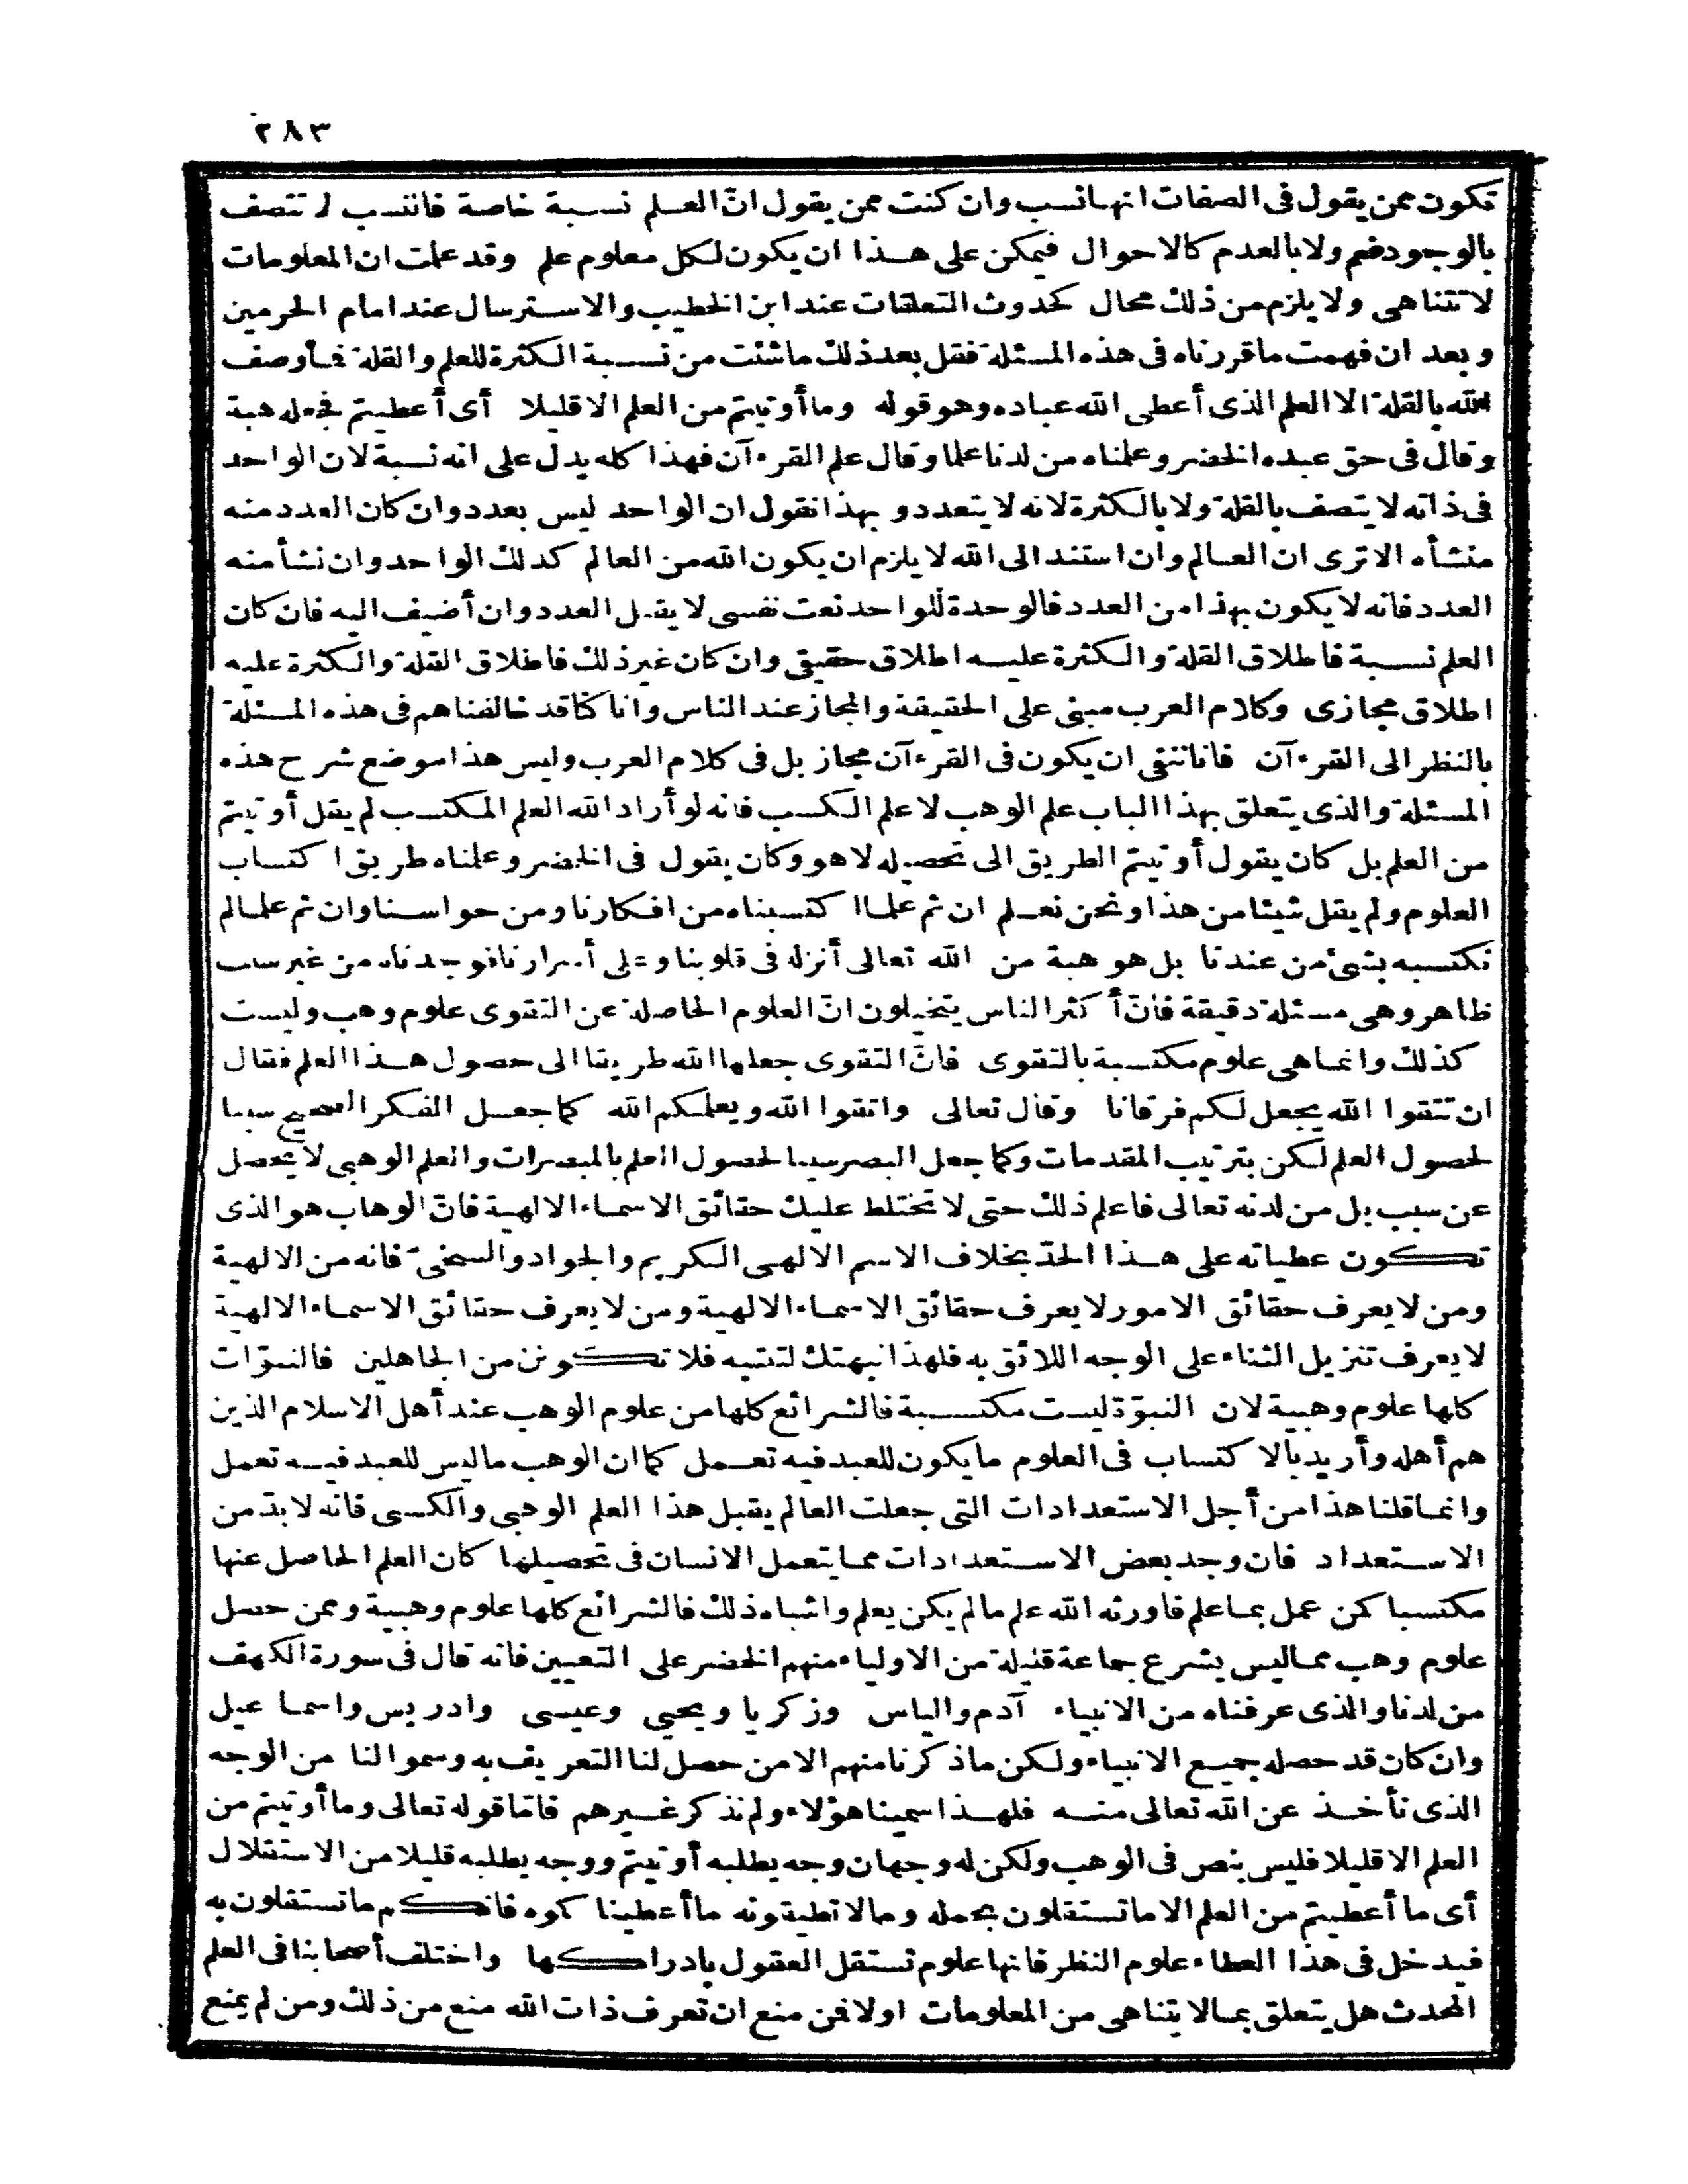 ٢٨٣
تكون ممن يقول فى الصفات انها نسب وان كنت ممن يقول انّ العلم نسبة خاصة فالنسب لا تتصف
بالوجود نعم ولا بالعدم كالاحوال فيمكن على هذا ان يكون لكل معلوم علم وقد علمت ان المعلومات
لا تتناهى ولا يلزم من ذلك محال كحدوث التعلقات عند ابن الخطيب والاسترسال عند امام الحرمين
وبعد ان فهمت ما قررناه فى هذه المسئلة فقل بعد ذلك ما شئت من نسبة الكثرة للعلم والقلة فما وصف
الله بالقلة الا العلم الذى أعطى الله عباده وهو قوله وما أوتيتم من العلم الا قليلا أى أعطيتم فجعله هبة
وقال فى حق عبده الخضر وعلمناه من لدنا علما وقال علم القرءآن فهذا كله يدل على انه نسبة لان الواحد
فى ذاته لا يتصف بالقلة ولا بالكثرة لانه لا يتعدد وبهذا نقول ان الواحد ليس بعدد وان كان العدد منه
منشأه الا ترى ان العالم وان استند الى الله لا يلزم ان يكون الله من العالم كذلك الواحد وان نشأ منه
العدد فانه لا يكون بهذا من العدد فالوحدة للواحد نعت نفسى لا يقبل العدد وان أضيف اليه فان كان
العلم نسبة فاطلاق القلة والكثرة عليه اطلاق حقيقى وان كان غير ذلك فاطلاق القلة والكثرة عليه
اطلاق مجازى وكلام العرب مبنى على الحقيقة والمجاز عند الناس وانا كنا قد خالفناهم فى هذه المسئلة
بالنظر الى القرءآن فانا ننفى ان يكون فى القرءآن مجاز بل فى كلام العرب وليس هذا موضع شرح هذه
المسئلة والذى يتعلق بهذا الباب علم الوهب لا علم الكسب فانه لو أراد الله العلم المكتسب لم يقل أوتيتم
من العلم بل كان يقول أوتيتم الطريق الى تحصيله لا هو وكان يقول فى الخضر وعلمناه طريق اكتساب
العلوم ولم يقل شيئا من هذا ونحن نعلم ان ثم علما اكتسبناه من افكارنا ومن حواسنا وان ثم علما لم
نكتسبه بشئ من عندنا بل هو هبة من الله تعالى أنزله فى قلوبنا وعلى أسرارنا فوجدناه من غير سبب
ظاهر وهى مسئلة دقيقة فانّ أكثر الناس يتخيلون انّ العلوم الحاصلة عن التقوى علوم وهب وليست
كذلك وانما هى علوم مكتسبة بالتقوى فانّ التقوى جعلها الله طريقا الى حصول هذا العلم فقال
ان تتقوا الله يجعل لكم فرقانا وقال تعالى واتقوا الله ويعلمكم الله كما جعل الفكر الصحيح سببا
لحصول العلم لكن بترتيب المقدمات وكما جعل البصر سببا لحصول العلم بالمبصرات والعلم الوهبى لا يحصل
عن سبب بل من لدنه تعالى فاعلم ذلك حتى لا تختلط عليك حقائق الاسماء الالهية فانّ الوهاب هو الذى
تكون عطياته على هذا الحدّ بخلاف الاسم الالهى الكريم والجواد والسخىّ فانه من الالهية
ومن لا يعرف حقائق الامور لا يعرف حقائق الاسماء الالهية ومن لا يعرف حقائق الاسماء الالهية
لا يعرف تنزيل الثناء على الوجه اللائق به فلهذا نبهتك لتتنبه فلا تكونن من الجاهلين فالنبوّات
كلها علوم وهبية لان النبوّة ليست مكتسبة فالشرائع كلها من علوم الوهب عند أهل الاسلام الذين
هم أهله وأريد بالاكتساب فى العلوم ما يكون للعبد فيه تعمل كما ان الوهب ما ليس للعبد فيه تعمل
وانما قلنا هذا من أجل الاستعدادات التى جعلت العالم يقبل هذا العلم الوهبى والكسبى فانه لا بدّ من
الاستعداد فان وجد بعض الاستعدادات مما يتعمل الانسان فى تحصيلها كان العلم الحاصل عنها
مكتسبا كمن عمل بما علم فاورثه الله علم ما لم يكن يعلم واشباه ذلك فالشرائع كلها علوم وهبية وممن حصل
علوم وهب مما ليس بشرع جماعة قليلة من الاولياء منهم الخضر على التعيين فانه قال فى سورة الكهف
من لدنا والذى عرفناه من الانبياء آدم والياس وزكريا ويحيى وعيسى وادريس واسماعيل
وان كان قد حصله جميع الانبياء ولكن ما ذكرنا منهم الا من حصل لنا التعريف به وسموا لنا من الوجه
الذى نأخذ عن الله تعالى منه فلهذا سمينا هؤلاء ولم نذكر غيرهم فامّا قوله تعالى وما أوتيتم من
العلم الا قليلا فليس بنص فى الوهب ولكن له وجهان وجه يطلبه أوتيتم ووجه يطلبه قليلا من الاستقلال
أى ما أعطيتم من العلم الا ما تستقلون بحمله وما لا تطيقونه ما أعطيناكموه فانكم ما تستقلون به
فيدخل فى هذا العطاء علوم النظر فانها علوم تستقل العقول بادراكها واختلف أصحابنا فى العلم
المحدث هل يتعلق بما لا يتناهى من المعلومات اولا فمن منع ان تعرف ذات الله منع من ذلك ومن لم يمنع